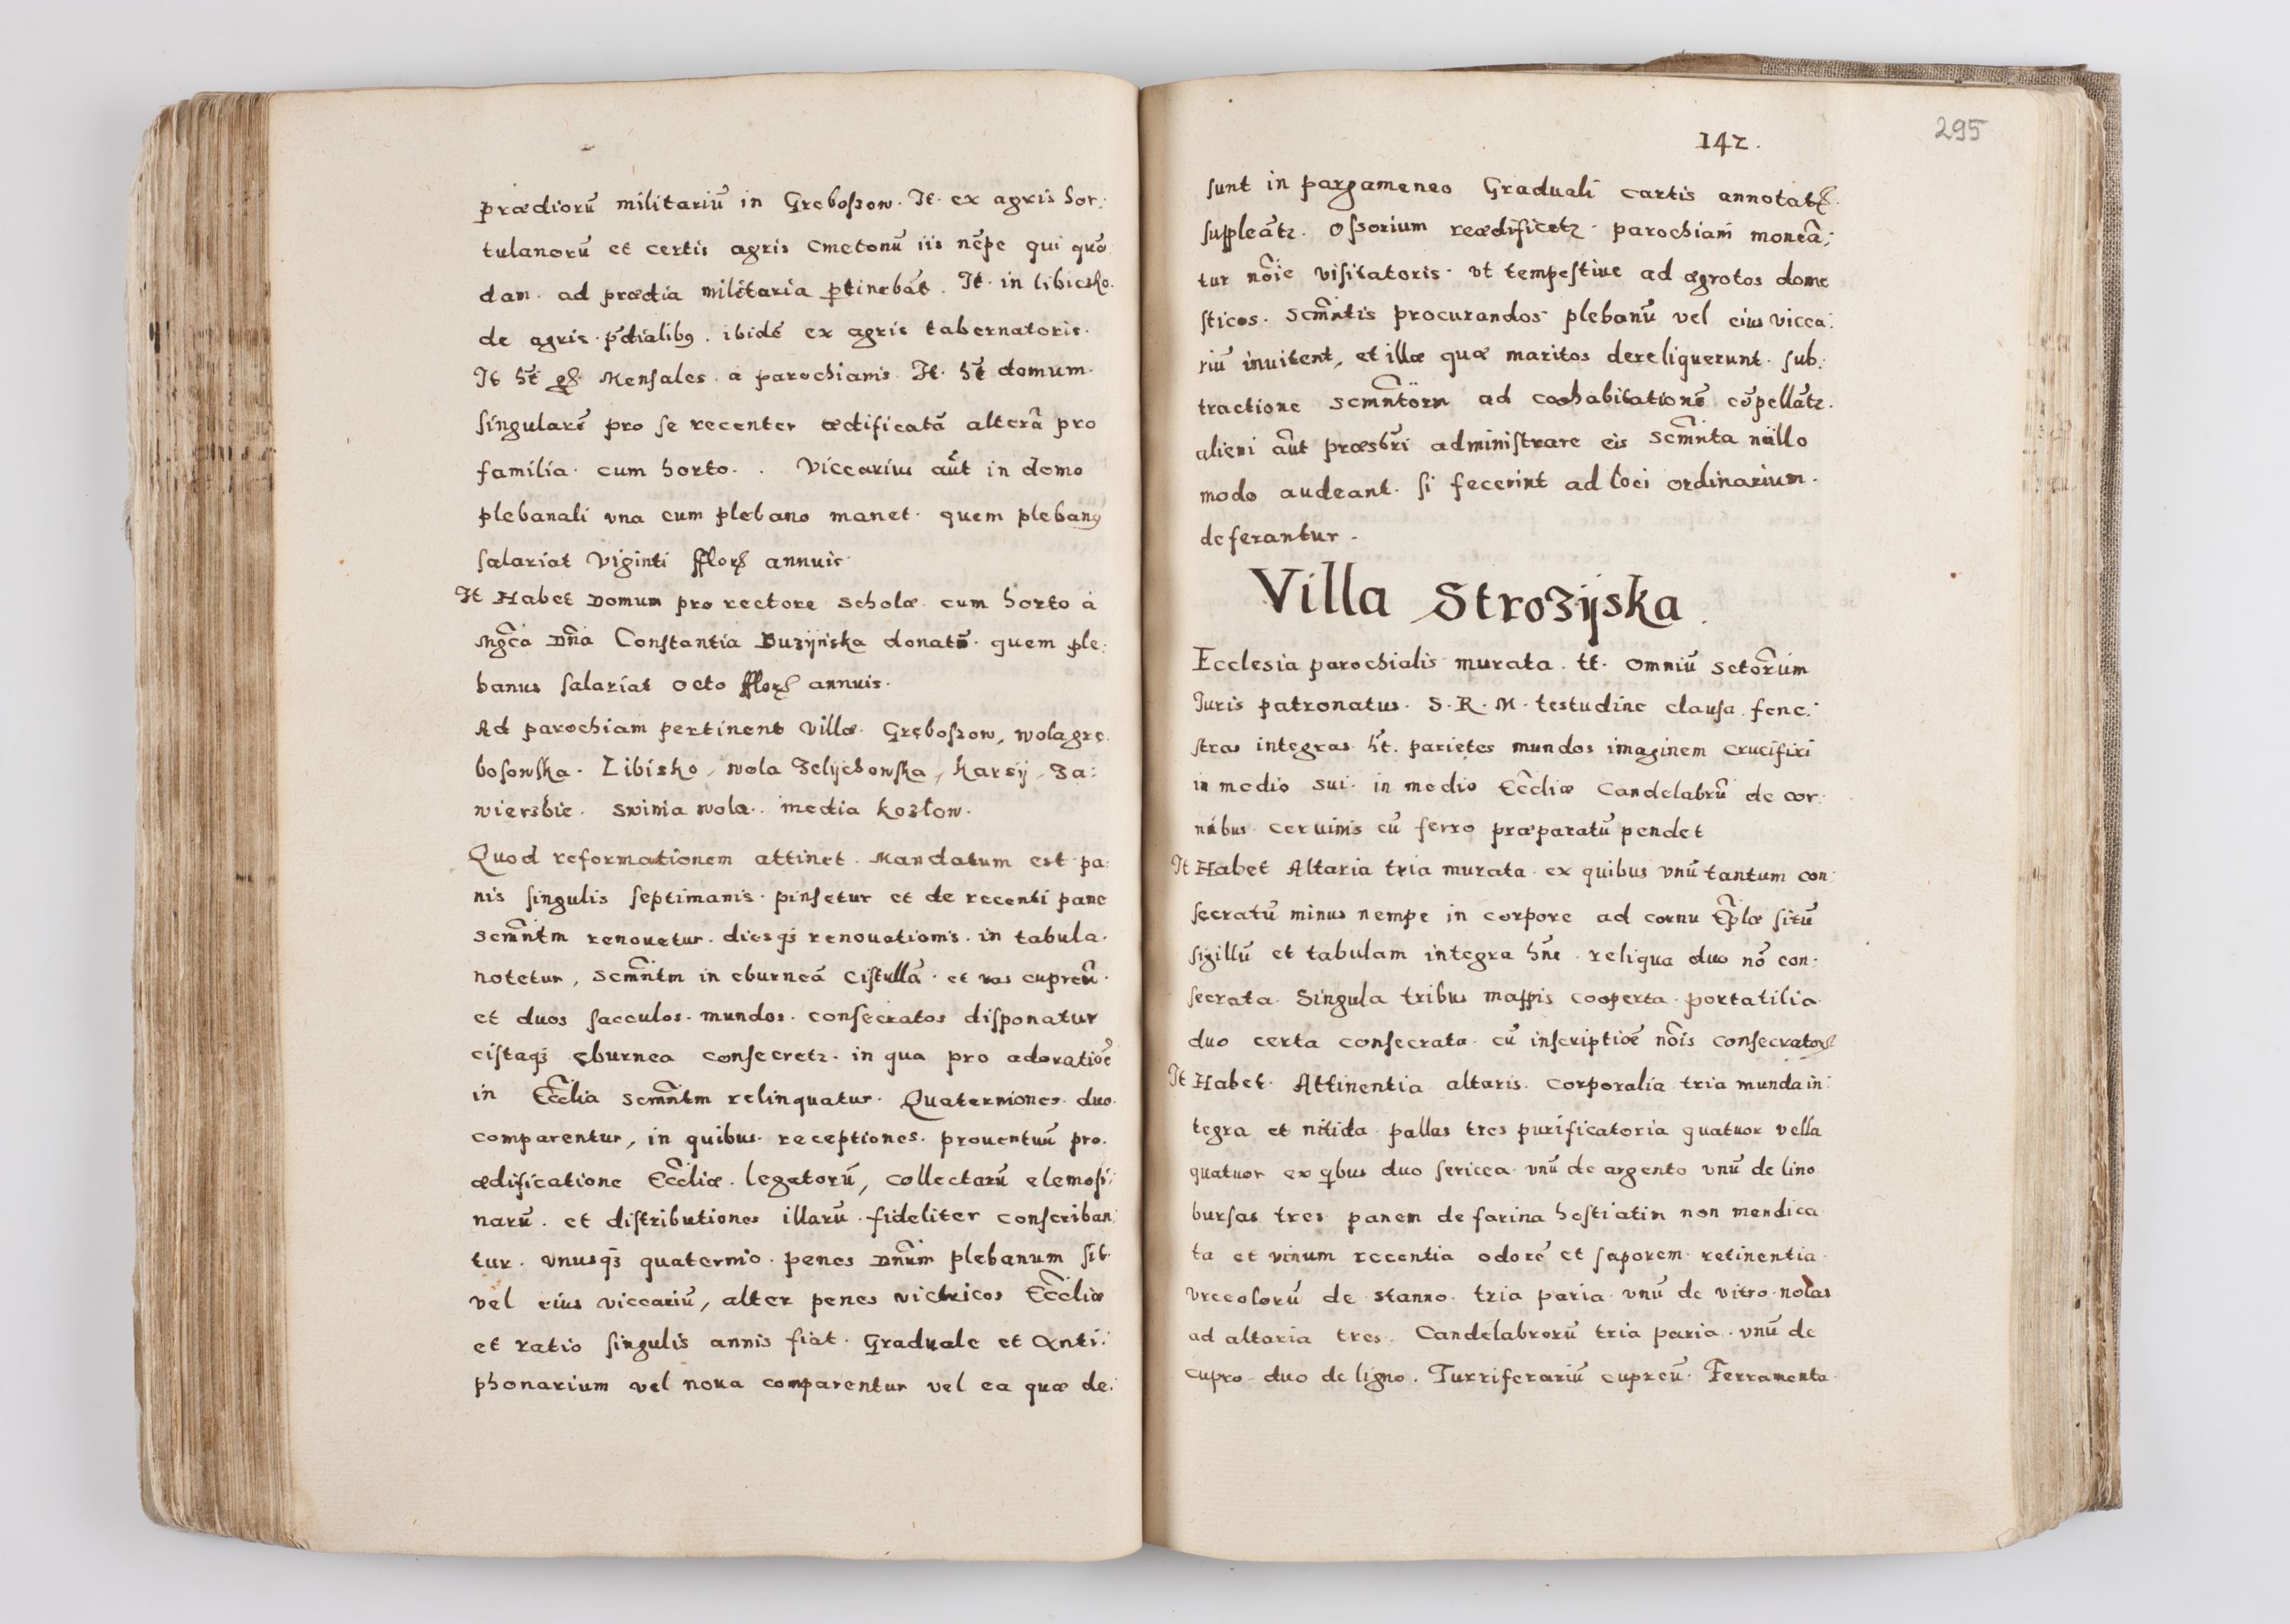 prædiorũ militariũ in Greboſzow. It. ex agris hor:
tulanorũ et certis agris Cmetonũ iis nẽpe qui quõ
dan. ad prædia militaria ptinebãt. It. in libiesko.
de agris. pdialibꝯ. ibidẽ ex agris tabernatoris.
It hẽt Mensales. a parochianis. It. hẽt domum.
ſingularẽ pro ſe recenter ædificatã alterã pro
familia. cum horto. . Viccarius aũt in domo
plebanali vna cum plebano manet. quem plebanꝯ
ſalariat Viginti fflorꝭ annuis
It Habet Domum pro rectore Scholæ. cum horto à
Mgcã Dnã Conſtantia Buzÿnska donatũ. quem ple:
banus ſalariat octo fflorꝭ annuis.
Ad parochiam pertinent Villæ. Gręboſzow, wolagrę.
boſowſka. Libisko, wola Zelÿchowſka, Karsÿ, Za:
wierzbie. swinia wola.. media kozłow.
Quod reformationem attinet. Mandatum est. pa:
nis ſingulis ſeptimanis. pinſetur et de recenti pane
Scmñtm renouetur. diesqꝫ renouationis. in tabula.
notetur, Scmñtm in eburneã Ciſtullã. et vas cupreũ.
et duos ſacculos. mundos. conſecratos diſponatur
ciſtaqꝫ eburnea conſecretꝛ. in qua pro adoratiõe
in Eccliã Scmñtm relinquatur. Quaterniones. duo.
comparentur, in quibus. receptiones. prouentuũ pro.
ædificatione Eccliæ̃. legatorũ, collectarũ elemoſi:
narũ. et diſtributiones illarũ. fideliter conſcriban:
tur. vnusqꝫ quaternio. penes Dnũm plebanum ſit.
vel eius viccariũ, alter penes victricos Eccliæ̃
et ratio ſingulis annis fiat. Graduale et Anti:
phonarium vel noua comparentur vel ea quæ de:
142.
295
ſunt in pargameneo Graduali cartis annotatꝭ.
ſuppleãtꝛ. Oſsorium reædificetꝛ. parochiani moneã:
tur nõie viſitatoris. vt tempeſtiue ad ægrotos dome
ſticos. Scmñtis procurandos plebanũ vel eius vicca:
riũ inuitent, et illæ quæ maritos dereliquerunt. ſub:
tractione Scmñtorn ad coohabitationẽ cõpellãtꝛ.
alieni aũt præsbri administrare eis Scmñta nullo
modo audeant. ſi fecerint ad loci ordinarium.
deferantur.
Villa Strozÿska.
Ecclesia parochialis murata. tt. Omniũ Sctorũm
Iuris patronatus. S. R. M. teſtudine clauſa. fene:
ſtras integras. hẽt. parietes mundos imaginem crucifixi
in medio sui. in medio Eccliæ̃ Candelabrũ de cor:
nibus. ceruinis cũ ferro præparatũ pendet
It Habet Altaria tria murata. ex quibus vnũ tantum con:
ſecratũ minus nempe in corpore ad cornu Eplæ̃ ſitũ
ſigillũ et tabulam integra hñs. reliqua duo nõ con:
ſecrata. Singula tribus mappis cooperta. portatilia.
duo certa conſecrata. cũ inſcriptiõe nõis conſecratorꝭ
It Habet. Attinentia altaris. Corporalia tria munda in:
tegra et nitida. pallas tres purificatoria quatuor vella
quatuor ex qbus duo ſericea. vnũ de argento vnũ de lino
burſas tres panem de farina hoſtiatim non mendica
ta et vinum recentia odorẽ et ſaporem. retinentia.
Vrceolorũ de stanno. tria paria. vnũ de vitro. nolas
ad altaria tres. Candelabrorũ tria paria. vnũ de
cupro duo de ligno. Turriferariũ cupreũ. Ferramenta.